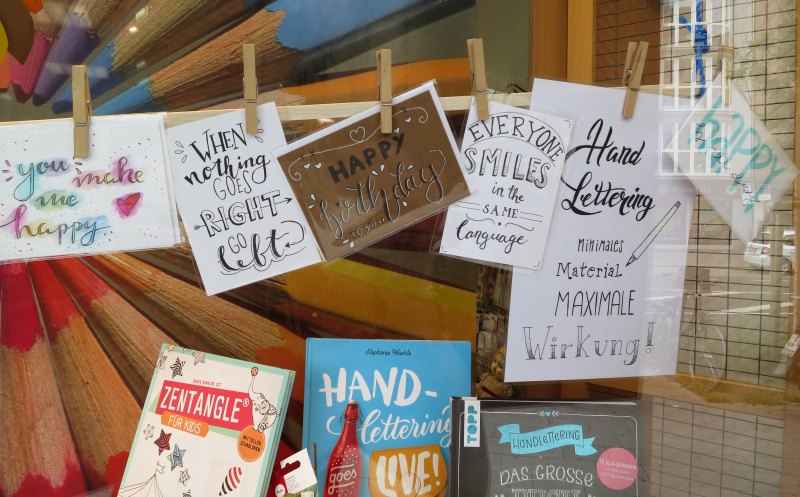 you make
me
happy
WHEN
nothing
GOES
RIGHT
GO
left
HAPPY
birthday
TO YOU
EVERYONE
SMILES
in the
SAME
Language
Hand
Lettering
MINIMALES
Material
MAXIMALE
Wirkung!
HAPPY
ZENTANGLE®
FÜR KIDS
Stephanie Wiehle
HAND-
lettering
goes
LIVE!
TOPP
HANDLETTERING
DAS GROSSE